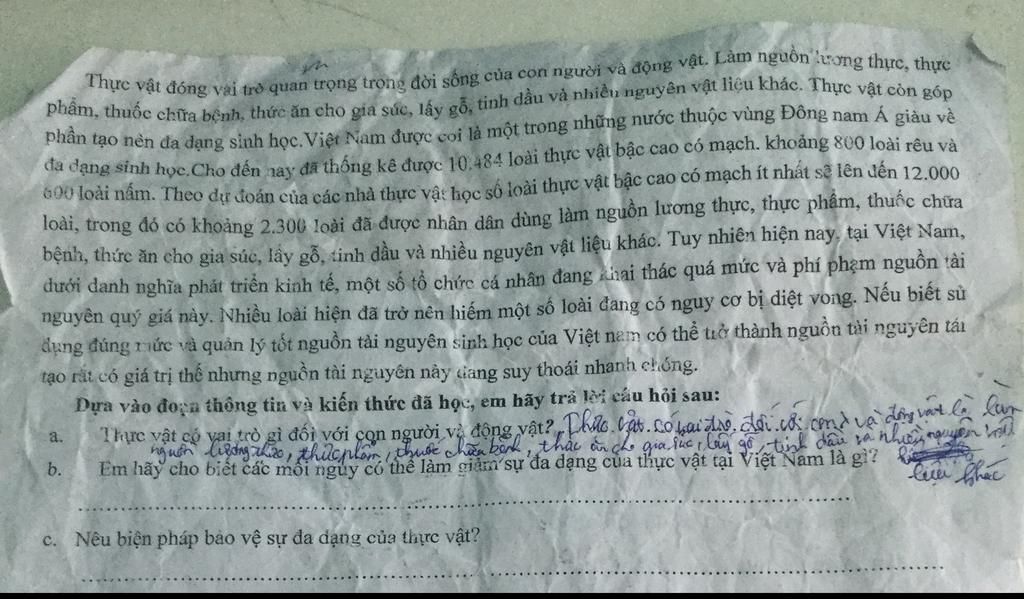 Thực vật đóng vai trò quan trọng trong đời sống của con người và động vật. Làm nguồn lương thực, thực
phẩm, thuốc chữa bệnh, thức ăn cho gia súc, lấy gỗ, tinh dầu và nhiều nguyên vật liệu khác. Thực vật còn góp
phần tạo nên đa dạng sinh học.Việt Nam được coi là một trong những nước thuộc vùng Đông nam Á giàu về
đa dạng sinh học.Cho đến nay đã thống kê được 10.484 loài thực vật bậc cao có mạch. khoảng 800 loài rêu và
600 loài nấm. Theo dự đoán của các nhà thực vật học số loài thực vật bậc cao có mạch ít nhất sẽ lên đến 12.000
loài, trong đó có khoảng 2.300 loài đã được nhân dân dùng làm nguồn lương thực, thực phẩm, thuốc chữa
bệnh, thức ăn cho gia súc, lấy gỗ, tinh dầu và nhiều nguyên vật liệu khác. Tuy nhiên hiện nay, tại Việt Nam,
dưới danh nghĩa phát triển kinh tế, một số tổ chức cá nhân đang khai thác quá mức và phí phạm nguồn tài
nguyên quý giá này. Nhiều loài hiện đã trở nên hiếm một số loài đang có nguy cơ bị diệt vong. Nếu biết sử
dụng đúng mức và quản lý tốt nguồn tài nguyên sinh học của Việt nam có thể trở thành nguồn tài nguyên tái
tạo rất có giá trị thế nhưng nguồn tài nguyên này đang suy thoái nhanh chóng.
Dựa vào đoạn thông tin và kiến thức đã học, em hãy trả lời câu hỏi sau:
a. Thực vật có vai trò gì đối với con người và động vật? Thực vật có vai trò đối với con và động vật là làm
nguồn lương thực, thực phẩm, thuốc chữa bệnh, thức ăn cho gia súc, lấy gỗ, tinh dầu và nhiều nguyên vật
b. Em hãy cho biết các mối nguy có thể làm giảm sự đa dạng của thực vật tại Việt Nam là gì? liệu khác
c. Nêu biện pháp bảo vệ sự đa dạng của thực vật?